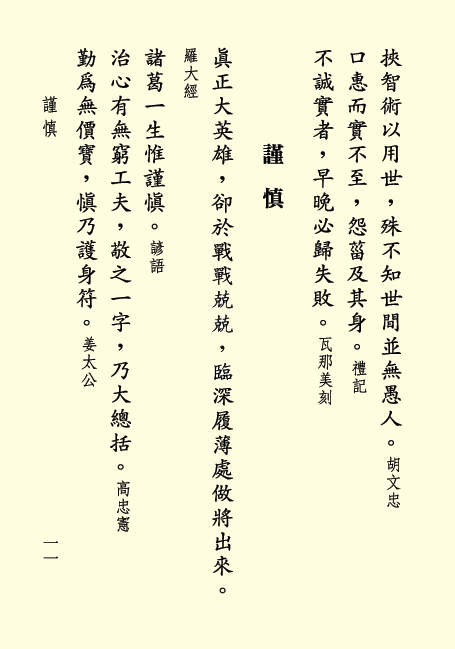 挾智術以用世，殊不知世間並無愚人。胡文忠
口惠而實不至，怨菑及其身。禮記
不誠實者，早晚必歸失敗。瓦那美刻
謹慎
眞正大英雄，卻於戰戰兢兢，臨深履薄處做將出來。
羅大經
諸葛一生惟謹愼。諺語
治心有無窮工夫，敬之一字，乃大總括。高忠憲
勤爲無價寶，愼乃護身符。姜太公
謹慎
一一